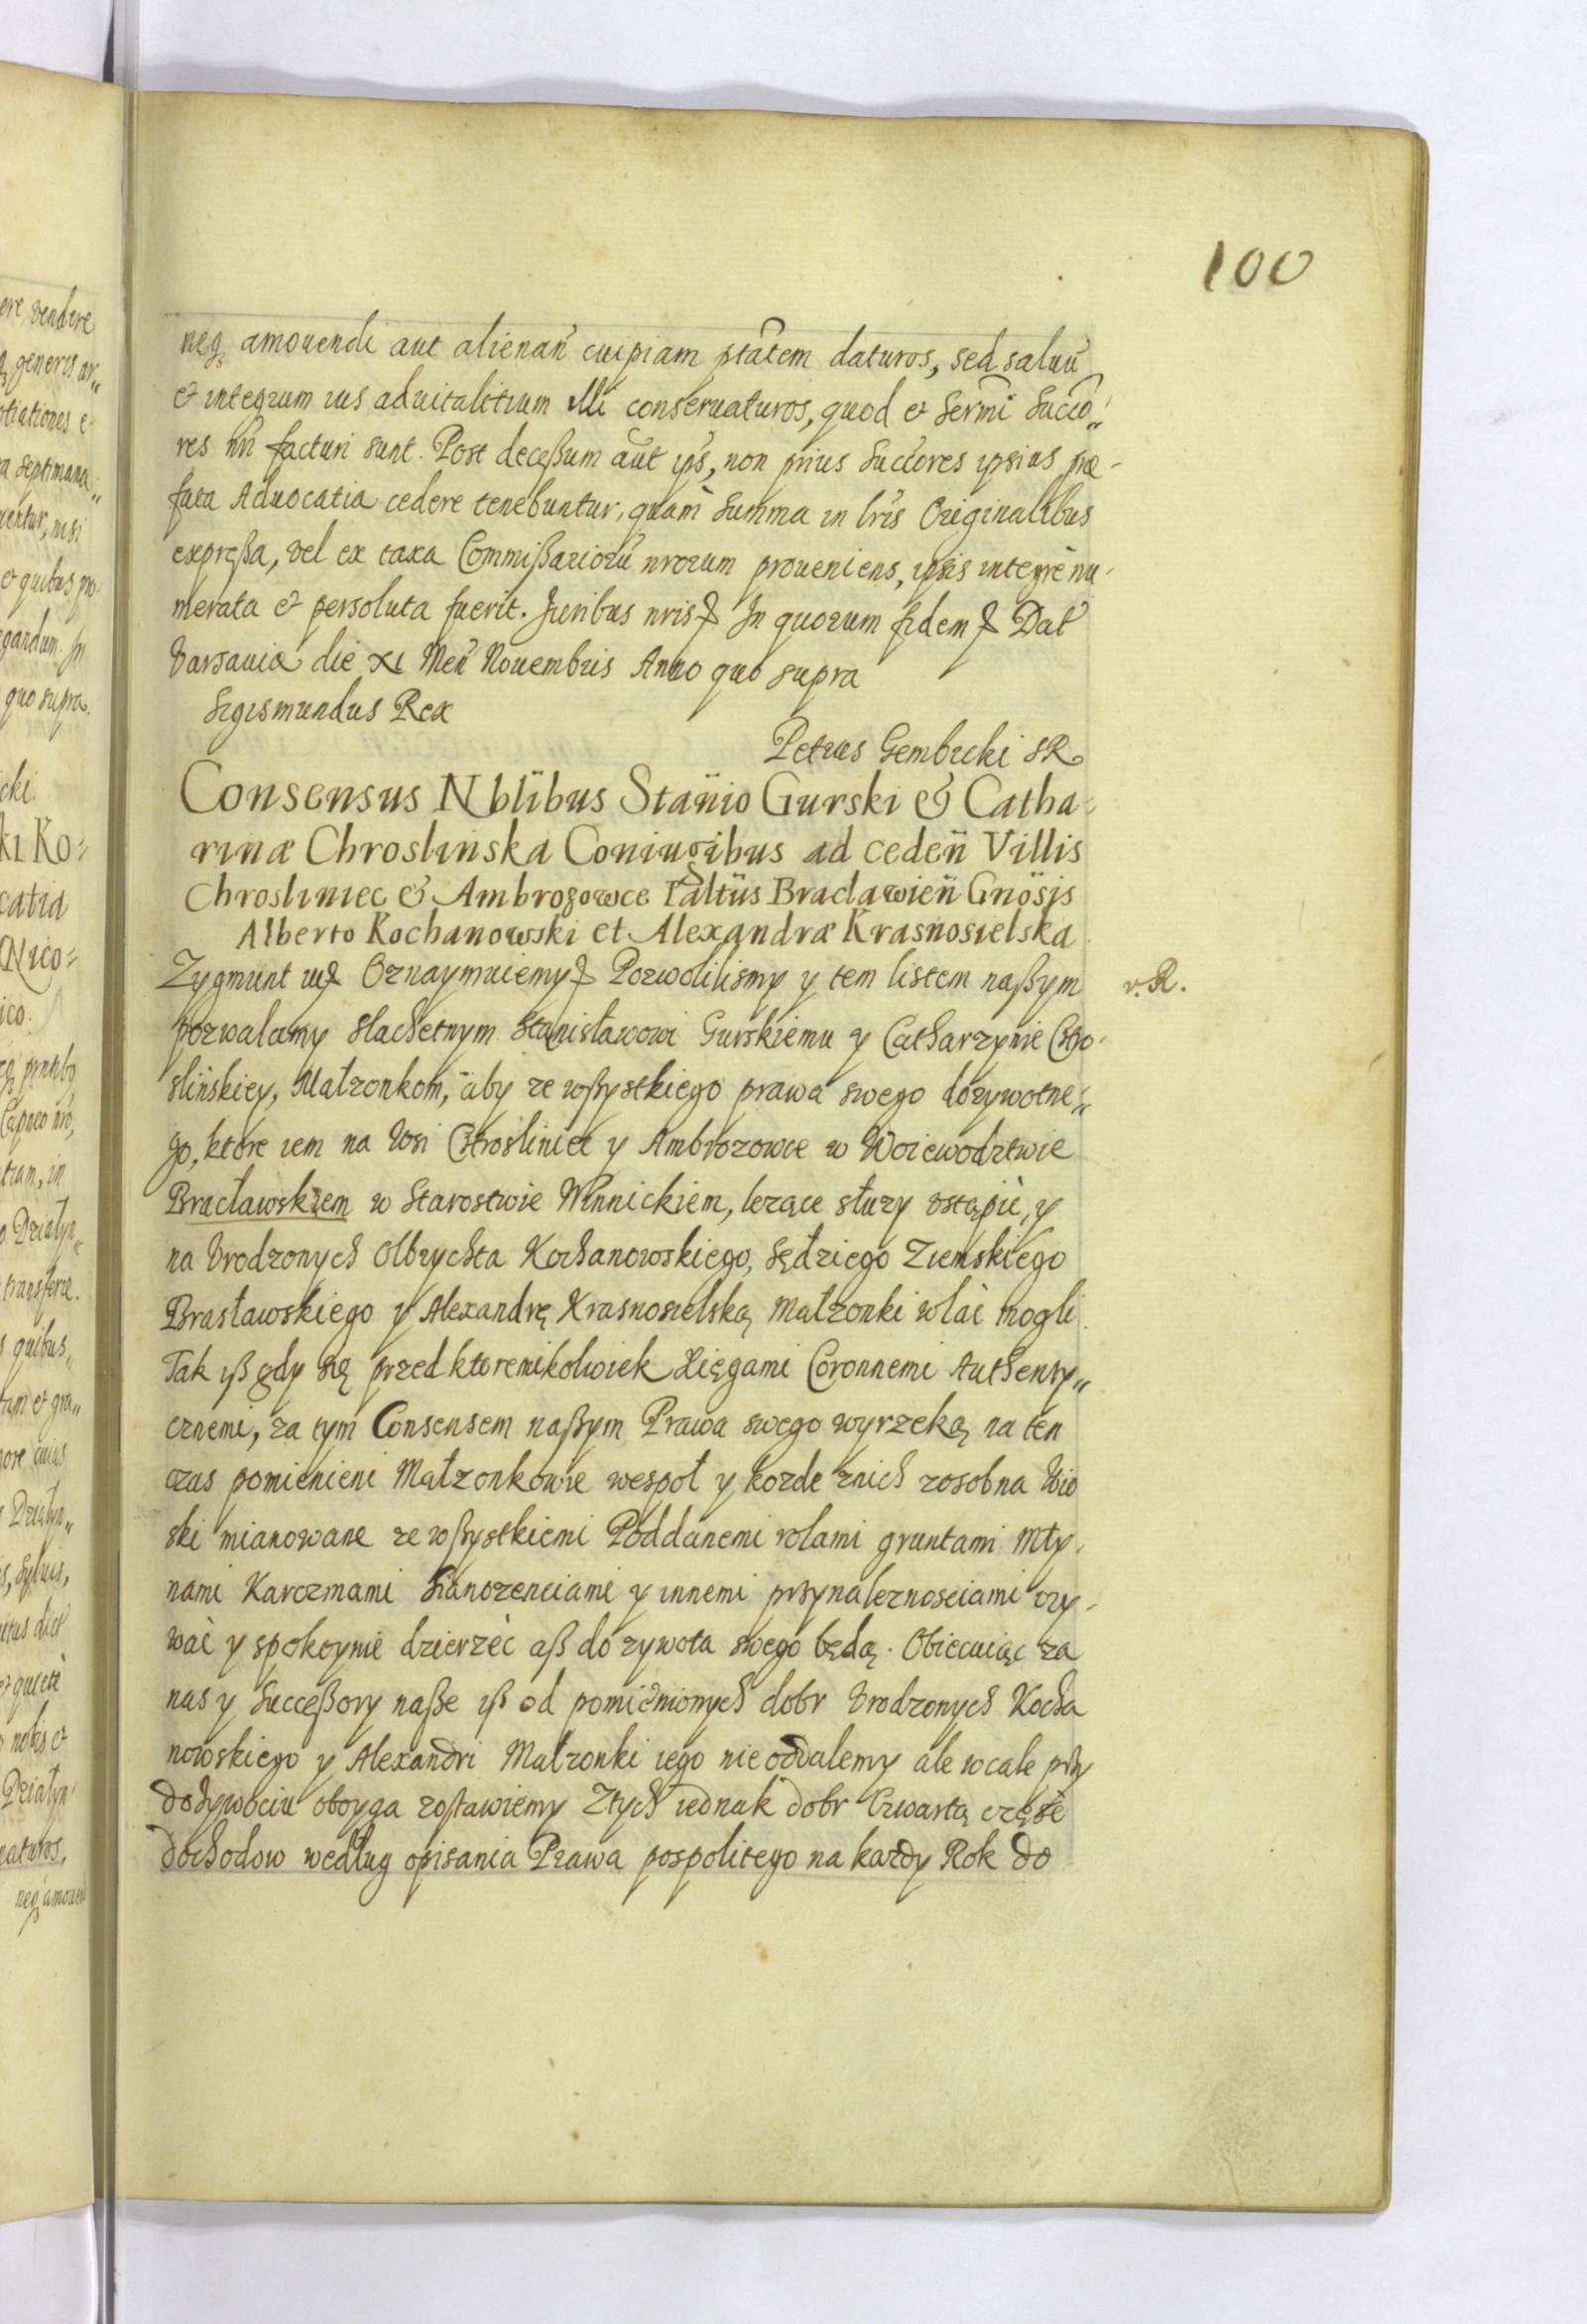 100
neq₃ amouendi aut alienan̄ cuipiam ptãtem daturos, sed saluū
et integrum ius aduitalitium illi conseruaturos, quod et Sermi Succo„
res nri facturi sunt. Post deceßum aut ips, non prius Succores ipsius præ-
fata Aduocatia cedere tenebuntur, quàm Summa in lris Originalibus
expreßa, vel ex taxa Commißariorū nrorum proueniens, ipsis integrè nu-
merata et persoluta fuerit. Juribus nris In quorum fidem Dat
Varsauiæ die XI Men̄ Nouembris Anno quo supra
Sigismundus Rex
Petrus Gembicki SR
Consensus Nblibus Stanio Gurski & Catha=
rinæ Chroslinska Coniugibus ad ceden̄ Villis
Chrosliniec & Ambrozowce Paltus Braclawien̄ Gnosis
Alberto Kochanowski et Alexandræ Krasnosielska
Zygmunt Oznaymuiemy Pozwolilismy y tem listem naßym
v. R.
pozwalamy Slachetnym Stanisławowi Gurskiemu y Catharzynie Chro-
slińskiey, Małzonkom, aby ze wßystkiego prawa swego dozywotne„
go, ktore iem na Wsi Chrosliniec y Ambrozowce w Woiewodztwie
Bracławskiem w Starostwie Winnickiem, lezące słuzy vstąpić, y
na Vrodzonych Olbrychta Kochanowskiego, Sędziego Ziemskiego
Brasławskiego y Alexandrę Krasnosielską Małzonki wlać mogli.
Tak iß gdy się przed ktoremikolwiek Xięgami Coronnemi Authenty„
cznemi, za tym Consensem naßym Prawa swego wyrzeką na ten
czas pomienieni Małzonkowie wespoł y kozde znich zosobna Wio
ski mianowane ze wßystkiemi Poddanemi rolami gruntami Mły-
nami Karczmami Sianozenciami y innemi przynaleznosciami vzy-
wać y spokoynie dzierzèc aß do zywota swego będą. Obiecuiąc za
nas y Succeßory naße iß od pomienionych dobr Vrodzonych Kocha
nowskiego y Alexandri Małzonki iego nie oddalemy ale wcale przy
dożywociu oboyga zostawiemy Ztych iednak dobr Czwartą częśc
dochodow według opisania Prawa pospolitego na kazdy Rok do